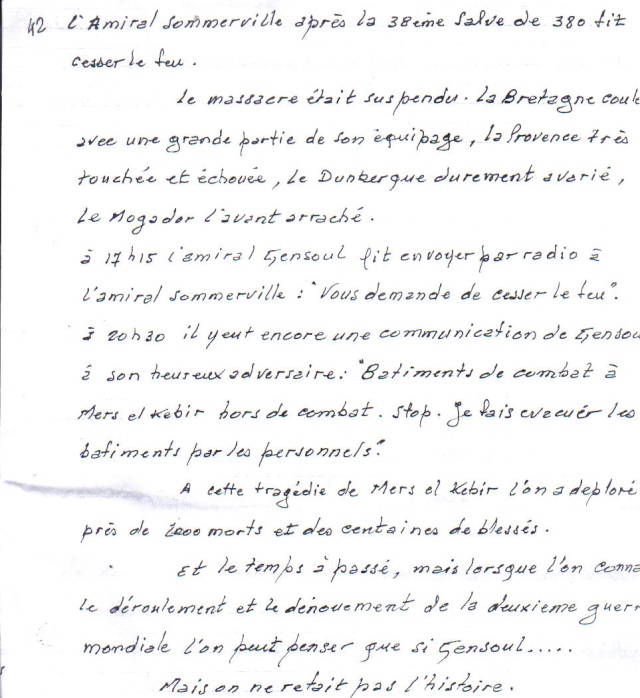 42 l'Amiral Sommerville après la 38ème Salve de 380 fit
cesser le feu.
Le massacre était suspendu. La Bretagne coul
avec une grande partie de son èquipage, la Provence très
touchée et échouée, Le Dunkerque durement avarié,
Le Mogador l'avant arraché.
à 17h15 l'amiral Gensoul fit envoyer par radio à
l'amiral Sommerville : "Vous demande de cesser le feu".
à 20h30 il y eut encore une communication de Gensou
à son heureux adversaire: "Batiments de combat à
Mers el Kebir hors de combat. Stop. Je fais evacuér les
batiments par les personnels".
A cette tragédie de Mers el Kebir l'on a deploré
près de 2000 morts et des centaines de blessés.
Et le temps à passé, mais lorsque l'on conna
le déroulement et le dénouement de la deuxieme guerr
mondiale l'on peut penser que si Gensoul.....
Mais on ne refait pas l'histoire.